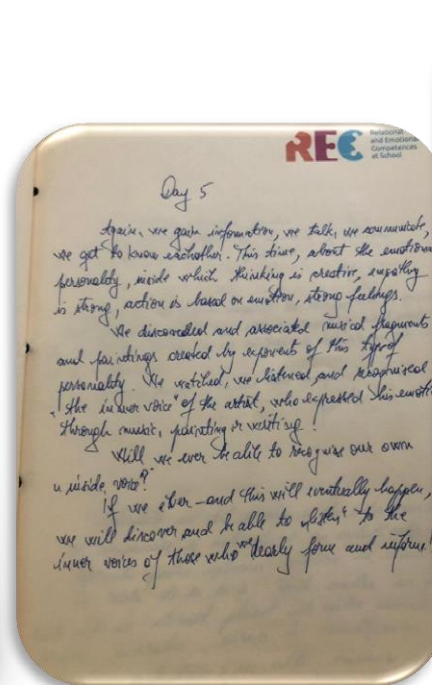 REC
Relational
and Emotional
Competences
at School
Day 5
Again, we gain information, we talk, we communicate,
we get to know eachother. This time, about the emotional
personality, inside which thinking is creative, empathy
is strong, action is based on emotion, strong feelings.
We discovered and associated musical fragments
and paintings created by exponents of this type of
personality. We watched, we listened and recognised
"the inner voice" of the artist, who expressed his emoti
through music, painting or writing!
Will we ever be able to recognise our own
"inside voice"?
If we ever – and this will eventually happen,
we will discover and be able to "listen" to the
inner voices of those who we dearly form and inform!